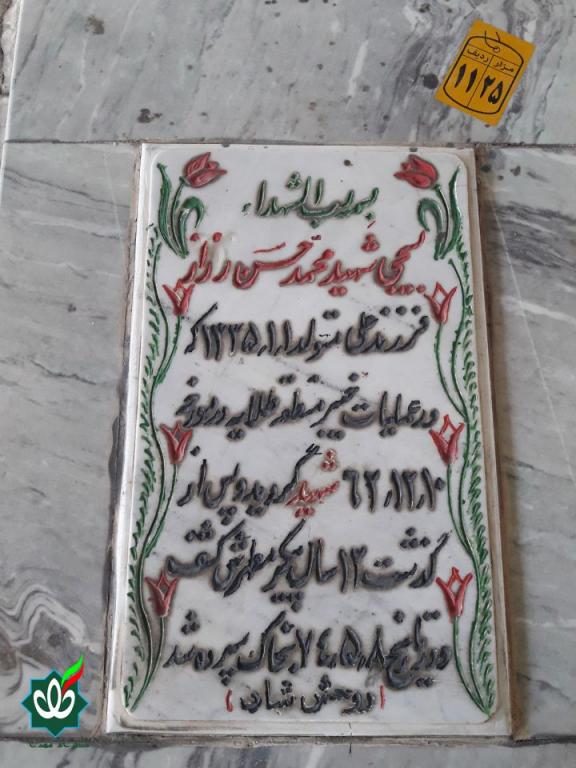 ها
مزار ردیف
۱۱ ۲۵
بسم رب الشهداء
بسیجی شهید محمد حسن رزاز
فرزند علی متولد ۱۳۳۵/۱/۱ که
در عملیات خیبر منطقه طلایه در مورخه
۶۲/۱۲/۱۰ شهید گردید و پس از
گذشت ۱۲ سال پیکر مطهرش کشف
و در تاریخ ۷۴/۵/۸ بخاک سپرده شد
( روحش شاد )